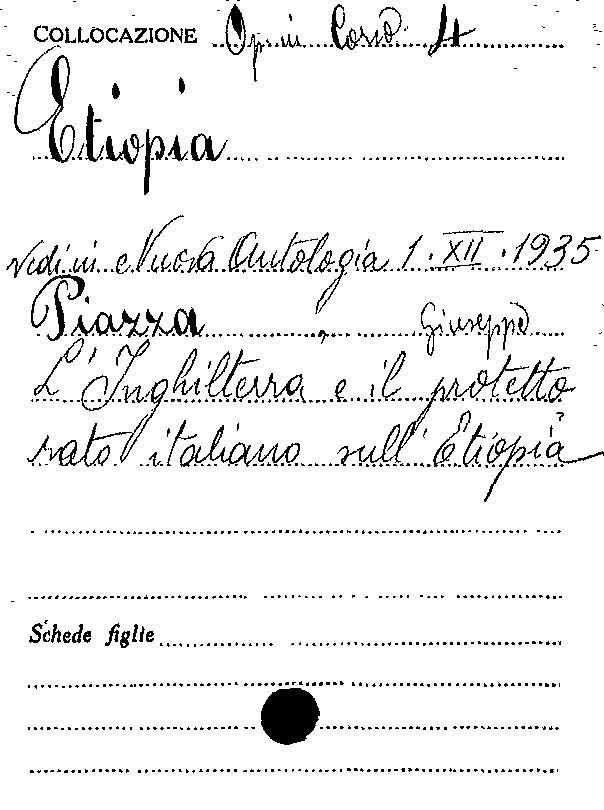 COLLOCAZIONE Op. in Corso 4
Etiopia
Vedi in Nuova Antologia 1. XII. 1935
Piazza, Giuseppe
L'Inghilterra e il protetto
rato italiano sull'Etiopia
Schede figlie